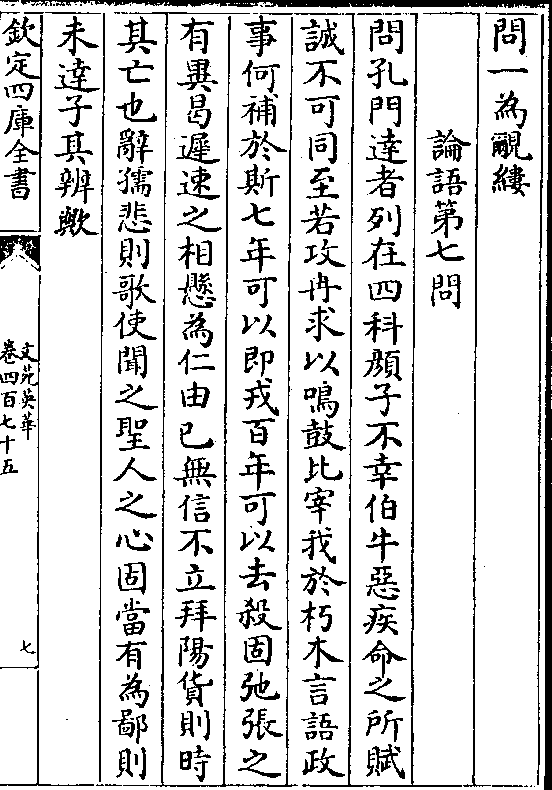 問一為覼縷
論語第七問
問孔門達者列在四科顔子不幸伯牛惡疾命之所賦
誠不可同至若攻冉求以鳴鼓比宰我於朽木言語政
事何補於斯七年可以即戎百年可以去殺固弛張之
有異曷遲速之相懸為仁由已無信不立拜陽貨則時
其亡也辭孺悲則歌使聞之聖人之心固當有為鄙則
未達子其辨歟
欽定四庫全書
文苑英華
卷四百七十五
七